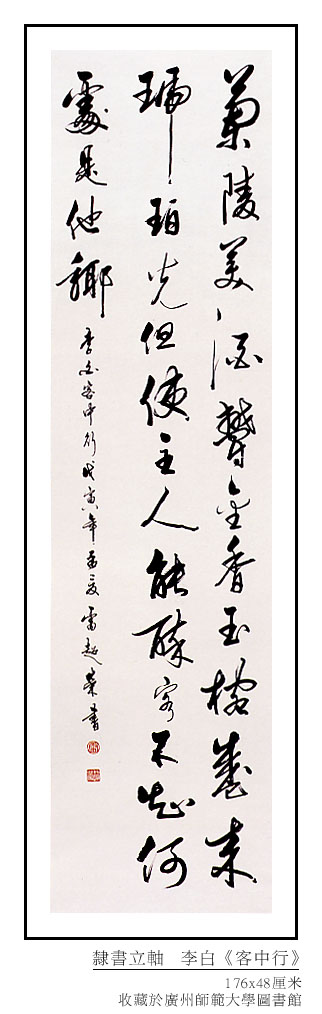 蘭陵美酒鬱金香玉椀盛來
琥珀光但使主人能醉客不知何
處是他鄉
李白客中行戊寅年孟夏雷超榮書
隸書立軸　李白《客中行》
176x48厘米
收藏於廣州師範大學圖書館